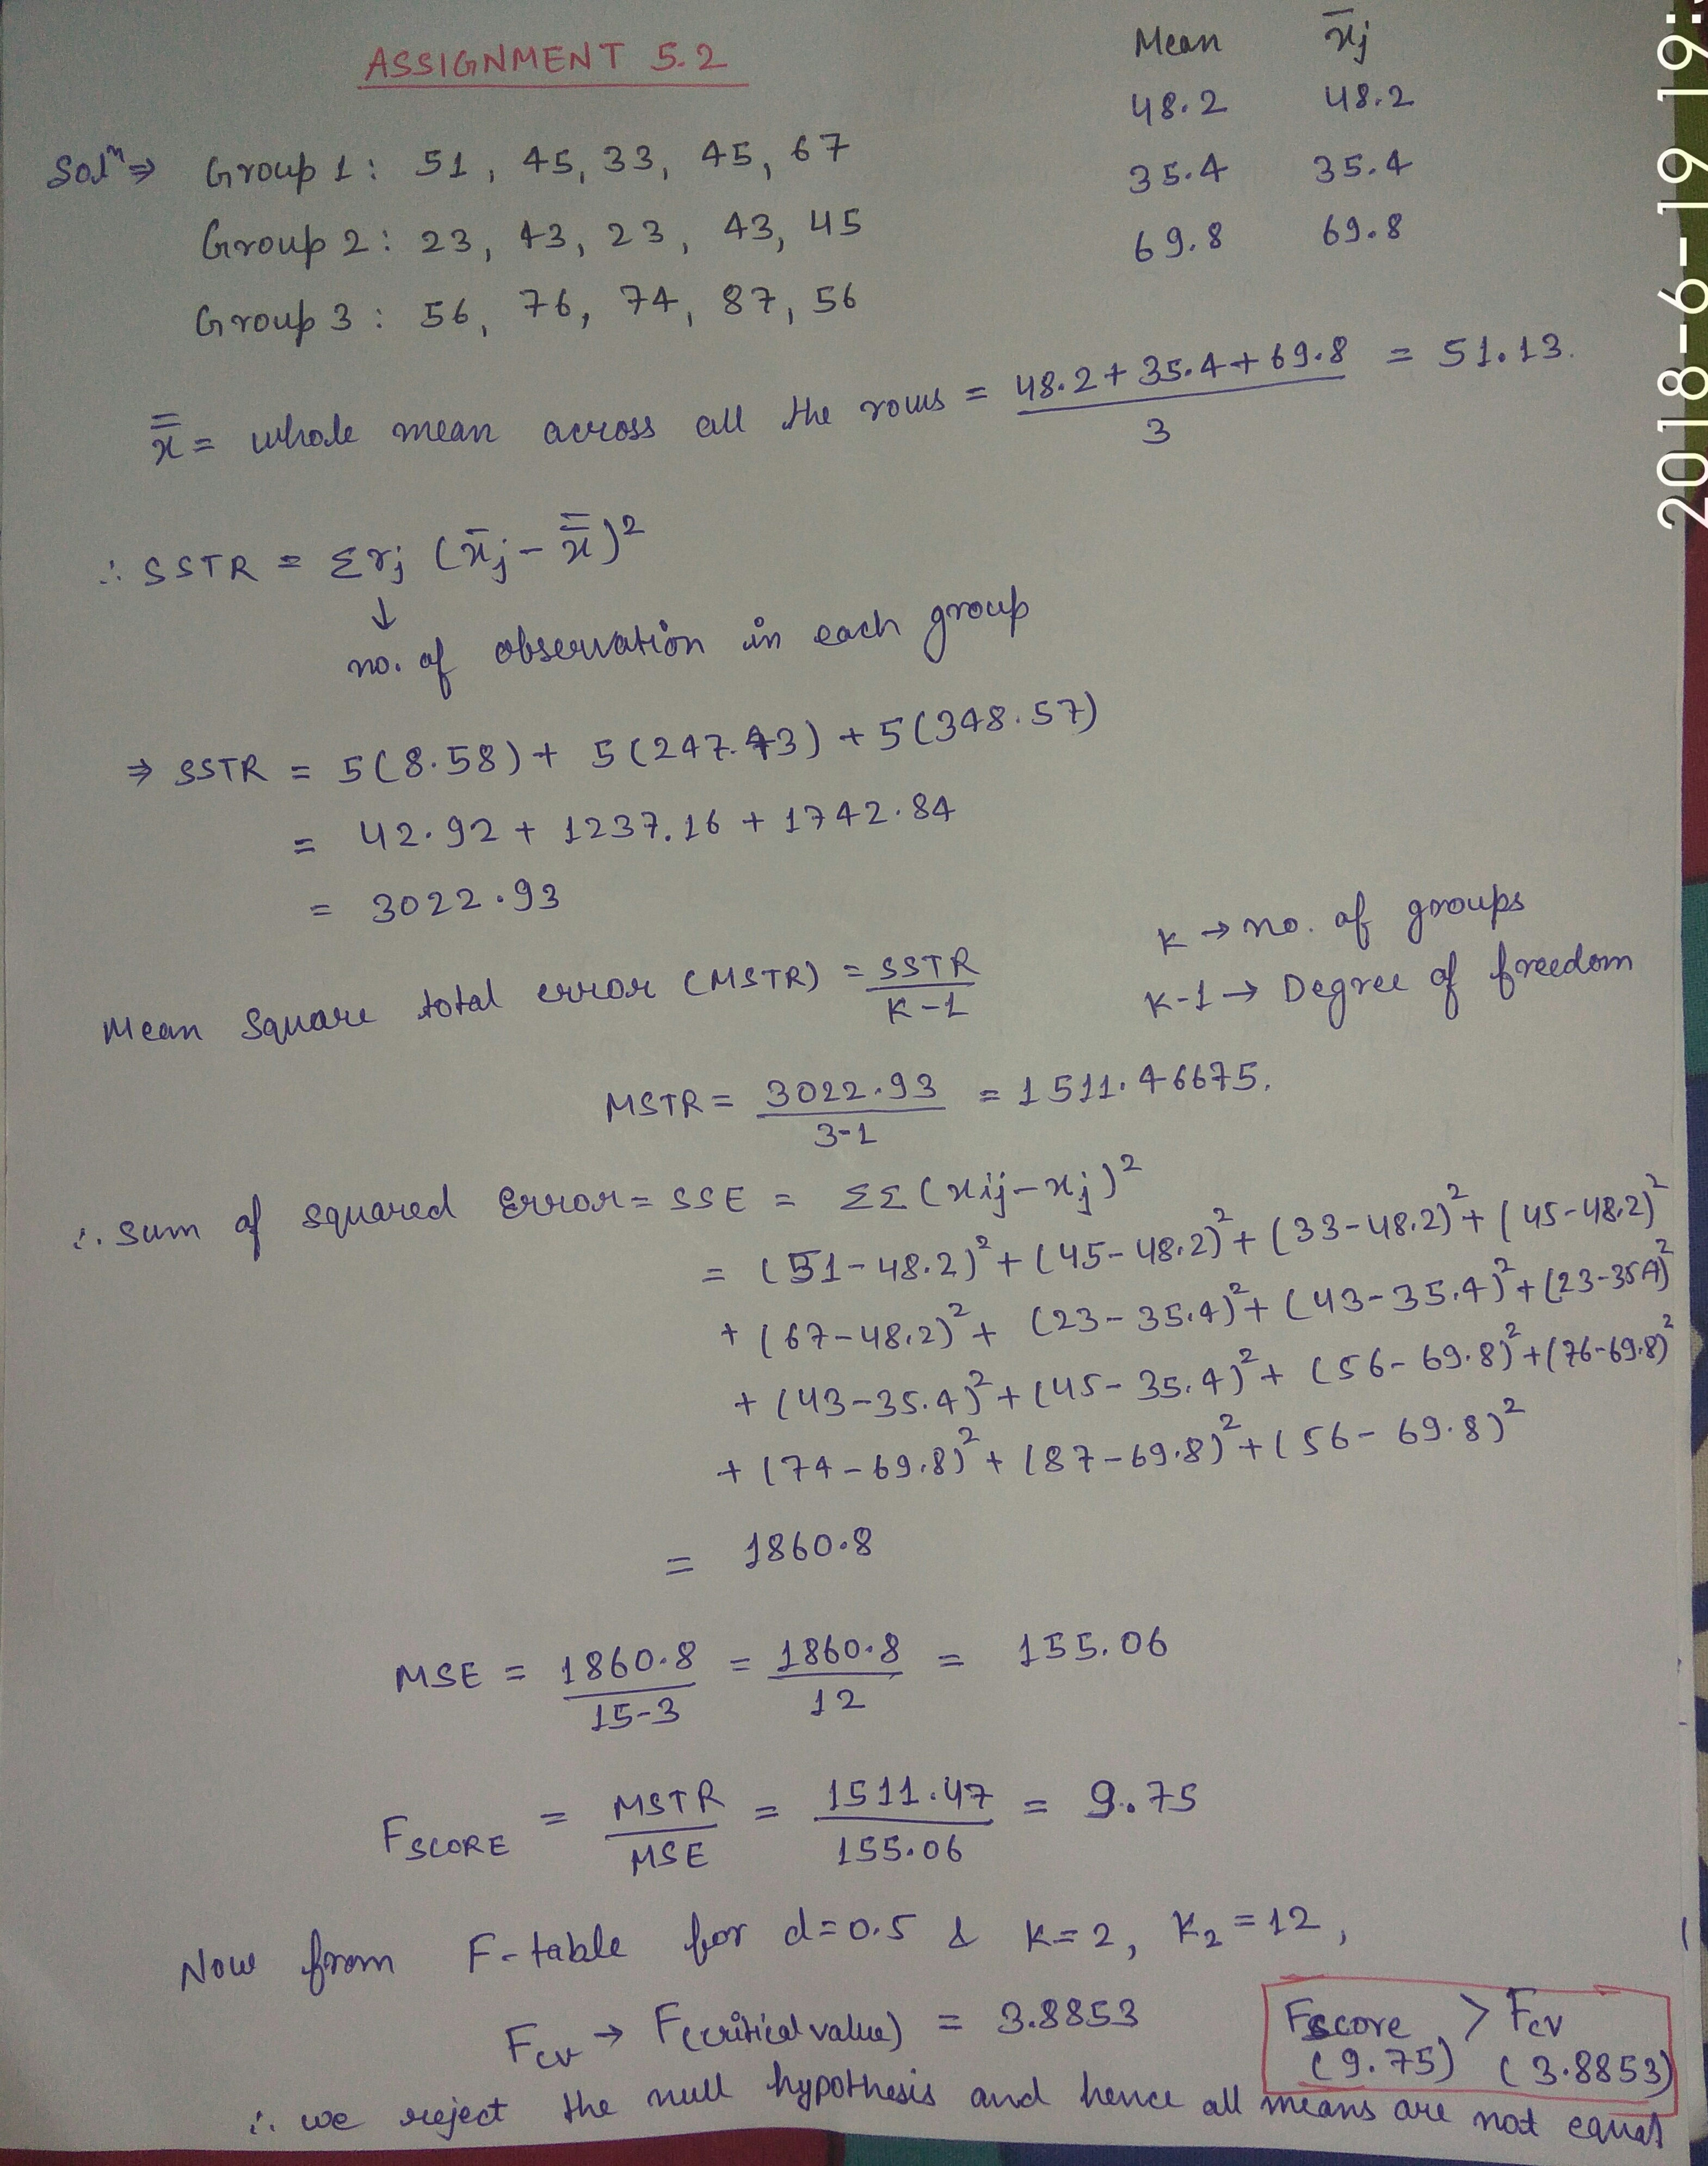 ASSIGNMENT 5.2
Mean x̄j
48.2 48.2
35.4 35.4
69.8 69.8
Solⁿ⇒ Group 1: 51, 45, 33, 45, 67
Group 2: 23, 43, 23, 43, 45
Group 3: 56, 76, 74, 87, 56
x̿ = whole mean across all the rows = (48.2+35.4+69.8)/3 = 51.13.
∴ SSTR = Σrj (x̄j - x̿)²
↓
no. of observation in each group
⇒ SSTR = 5(8.58) + 5(247.43) + 5(348.57)
= 42.92 + 1237.16 + 1742.84
= 3022.93
Mean Square total error (MSTR) = SSTR/(K-1)
K → no. of groups
K-1 → Degree of freedom
MSTR = 3022.93/(3-1) = 1511.46675.
∴ sum of squared Error = SSE = ΣΣ(xij-xj)²
= (51-48.2)² + (45-48.2)² + (33-48.2)² + (45-48.2)²
+ (67-48.2)² + (23-35.4)² + (43-35.4)² + (23-35.4)²
+ (43-35.4)² + (45-35.4)² + (56-69.8)² + (76-69.8)²
+ (74-69.8)² + (87-69.8)² + (56-69.8)²
= 1860.8
MSE = 1860.8/(15-3) = 1860.8/12 = 155.06
FSCORE = MSTR/MSE = 1511.47/155.06 = 9.75
Now from F-table for d=0.5 & K=2, K₂=12,
Fcv → F(critical value) = 3.8853
Fscore > Fcv
(9.75) (3.8853)
∴ we reject the null hypothesis and hence all means are not equal
2018-6-19 19: